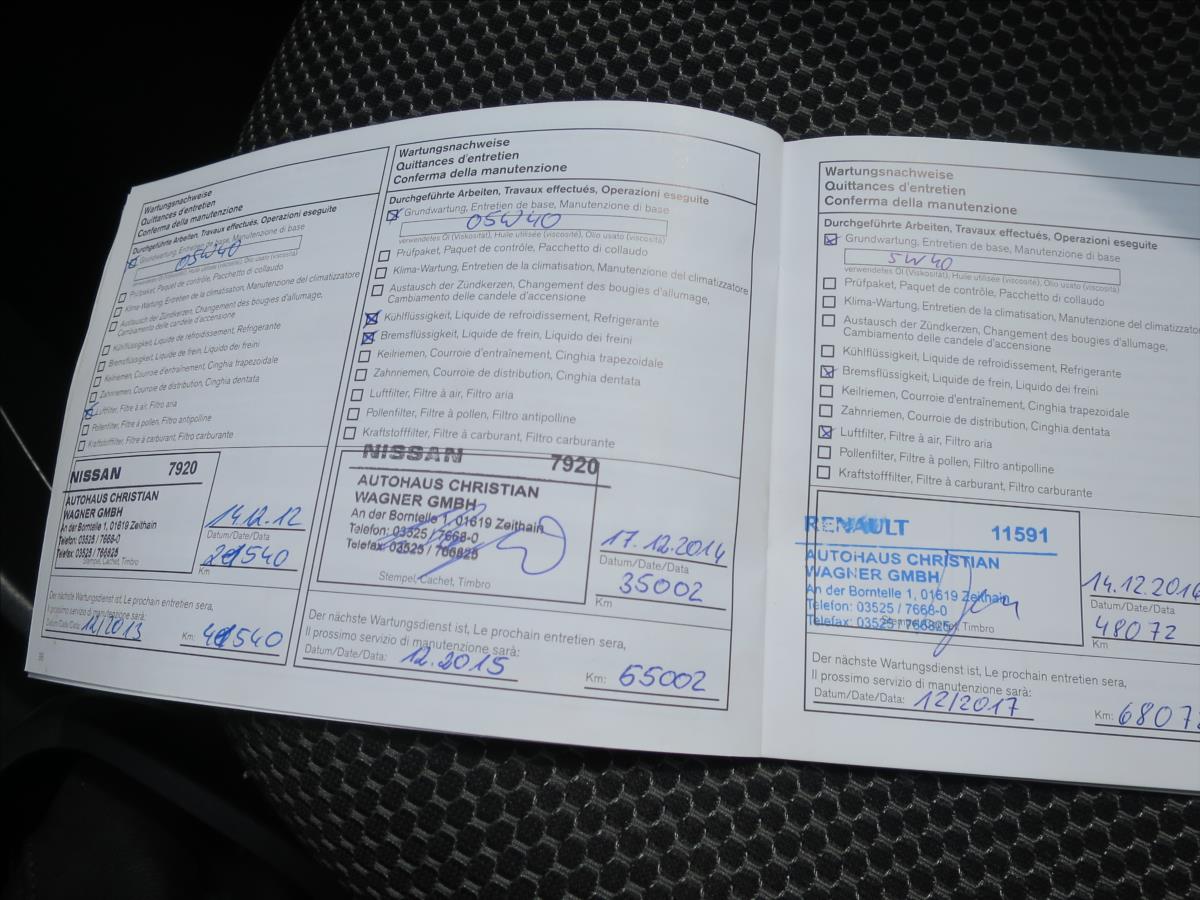 Wartungsnachweise
Quittances d'entretien
Conferma della manutenzione
Durchgeführte Arbeiten, Travaux effectués, Operazioni eseguite
Grundwartung, Entretien de base, Manutenzione di base
05W40
verwendetes Öl (Viskosität), Huile utilisée (viscosité), Olio usato (viscosità)
Prüfpaket, Paquet de contrôle, Pacchetto di collaudo
Klima-Wartung, Entretien de la climatisation, Manutenzione del climatizzatore
Austausch der Zündkerzen, Changement des bougies d'allumage,
Cambiamento delle candele d'accensione
Kühlflüssigkeit, Liquide de refroidissement, Refrigerante
Bremsflüssigkeit, Liquide de frein, Liquido dei freini
Keilriemen, Courroie d'entraînement, Cinghia trapezoidale
Zahnriemen, Courroie de distribution, Cinghia dentata
Luftfilter, Filtre à air, Filtro aria
Pollenfilter, Filtre à pollen, Filtro antipolline
Kraftstofffilter, Filtre à carburant, Filtro carburante
NISSAN 7920
AUTOHAUS CHRISTIAN
WAGNER GMBH
An der Borntelle 1, 01619 Zeithain
Telefon: 03525 / 7668-0
Telefax: 03525 / 766825
Stempel, Cachet, Timbro
14.12.12
Datum/Date/Data
540
Km
Der nächste Wartungsdienst ist, Le prochain entretien sera,
Il prossimo servizio di manutenzione sarà:
Datum/Date/Data: 12/2013
Km: 540
Wartungsnachweise
Quittances d'entretien
Conferma della manutenzione
Durchgeführte Arbeiten, Travaux effectués, Operazioni eseguite
Grundwartung, Entretien de base, Manutenzione di base
05W40
verwendetes Öl (Viskosität), Huile utilisée (viscosité), Olio usato (viscosità)
Prüfpaket, Paquet de contrôle, Pacchetto di collaudo
Klima-Wartung, Entretien de la climatisation, Manutenzione del climatizzatore
Austausch der Zündkerzen, Changement des bougies d'allumage,
Cambiamento delle candele d'accensione
Kühlflüssigkeit, Liquide de refroidissement, Refrigerante
Bremsflüssigkeit, Liquide de frein, Liquido dei freini
Keilriemen, Courroie d'entraînement, Cinghia trapezoidale
Zahnriemen, Courroie de distribution, Cinghia dentata
Luftfilter, Filtre à air, Filtro aria
Pollenfilter, Filtre à pollen, Filtro antipolline
Kraftstofffilter, Filtre à carburant, Filtro carburante
NISSAN 7920
AUTOHAUS CHRISTIAN
WAGNER GMBH
An der Borntelle 1, 01619 Zeithain
Telefon: 03525 / 7668-0
Telefax: 03525 / 766825
Stempel, Cachet, Timbro
17.12.2014
Datum/Date/Data
35002
Km
Der nächste Wartungsdienst ist, Le prochain entretien sera,
Il prossimo servizio di manutenzione sarà:
Datum/Date/Data: 12.2015
Km: 55002
Wartungsnachweise
Quittances d'entretien
Conferma della manutenzione
Durchgeführte Arbeiten, Travaux effectués, Operazioni eseguite
Grundwartung, Entretien de base, Manutenzione di base
5W40
verwendetes Öl (Viskosität), Huile utilisée (viscosité), Olio usato (viscosità)
Prüfpaket, Paquet de contrôle, Pacchetto di collaudo
Klima-Wartung, Entretien de la climatisation, Manutenzione del climatizzator
Austausch der Zündkerzen, Changement des bougies d'allumage,
Cambiamento delle candele d'accensione
Kühlflüssigkeit, Liquide de refroidissement, Refrigerante
Bremsflüssigkeit, Liquide de frein, Liquido dei freini
Keilriemen, Courroie d'entraînement, Cinghia trapezoidale
Zahnriemen, Courroie de distribution, Cinghia dentata
Luftfilter, Filtre à air, Filtro aria
Pollenfilter, Filtre à pollen, Filtro antipolline
Kraftstofffilter, Filtre à carburant, Filtro carburante
RENAULT 11591
AUTOHAUS CHRISTIAN
WAGNER GMBH
An der Borntelle 1, 01619 Zeithain
Telefon: 03525 / 7668-0
Stempel, Cachet, Timbro
Telefax: 03525 / 766825
14.12.2016
Datum/Date/Data
48072
Km
Der nächste Wartungsdienst ist, Le prochain entretien sera,
Il prossimo servizio di manutenzione sarà:
Datum/Date/Data: 12/2017
Km: 6807